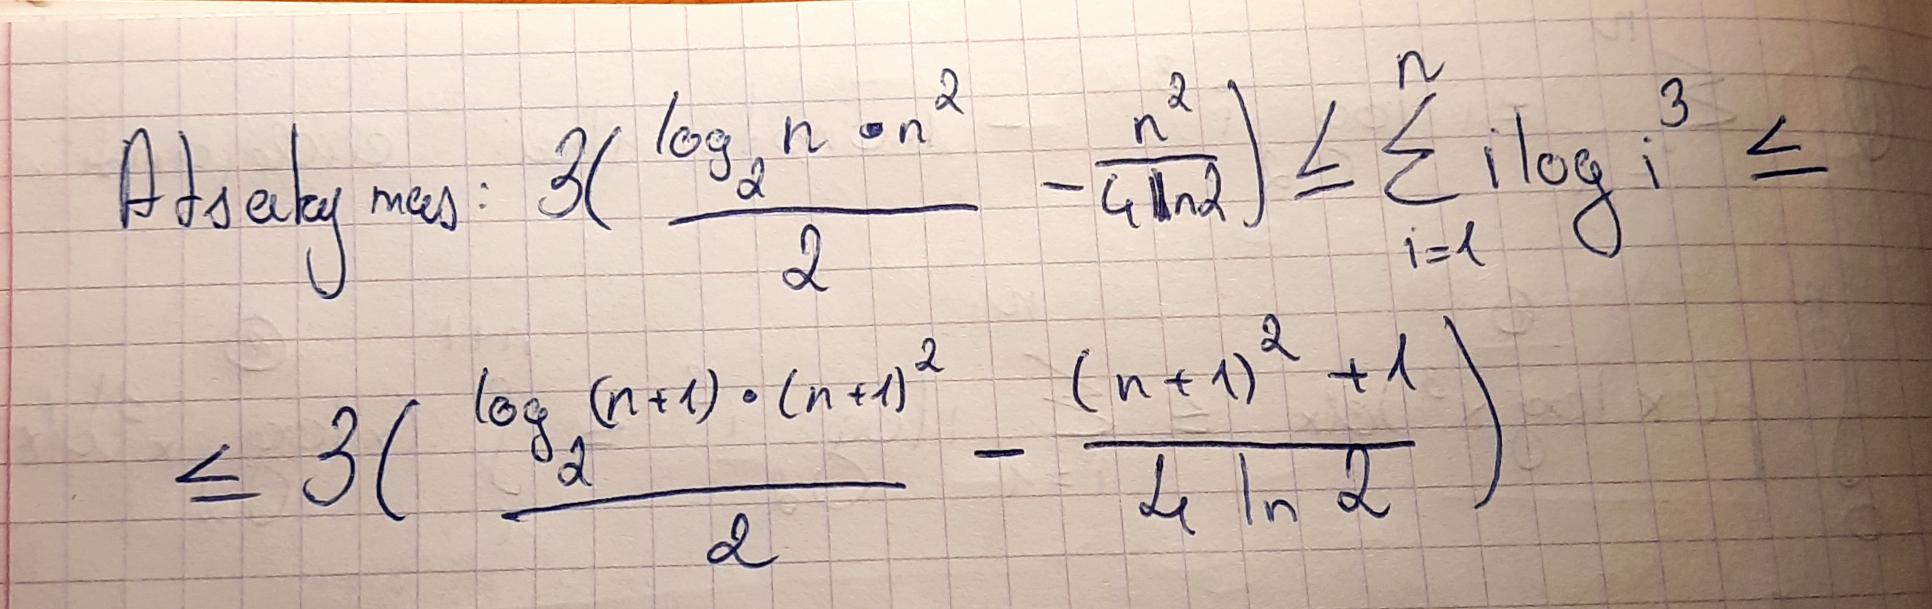 Atsakymas: 3( \frac{log_2 n • n^2}{2} - \frac{n^2}{4 ln2} ) ≤ \sum_{i=1}^{n} i log i^3 ≤
≤ 3( \frac{log_2 (n+1) • (n+1)^2}{2} - \frac{(n+1)^2 + 1}{4 ln 2} )